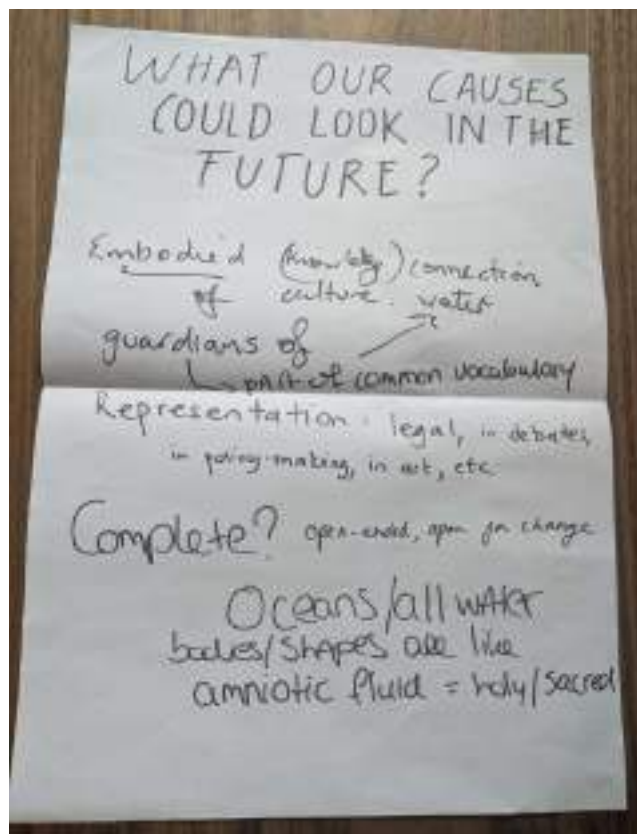 WHAT OUR CAUSES
COULD LOOK IN THE
FUTURE?
Embodied (knowledge) connection
of culture water
guardians of
part of common vocabulary
Representation: legal, in debates,
in policy-making, in art, etc
Complete? open-ended, open for change
Oceans/all WATER
bodies/SHAPES ARE like
amniotic fluid = holy/sacred